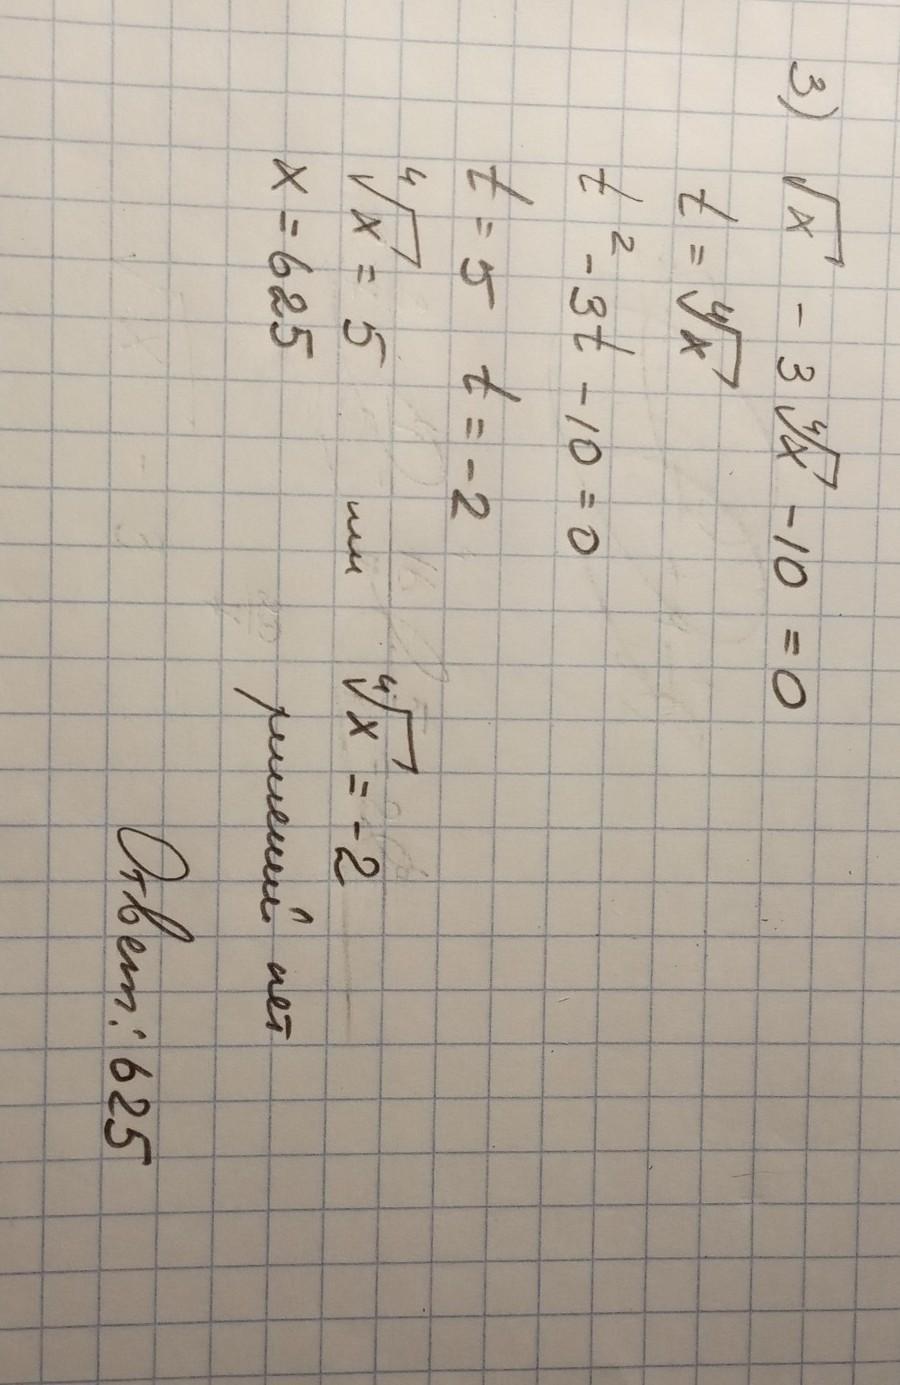 3) √x - 3∜x - 10 = 0
t = ∜x
t² - 3t - 10 = 0
t = 5 t = -2
∜x = 5 или ∜x = -2
x = 625 решений нет
Ответ: 625